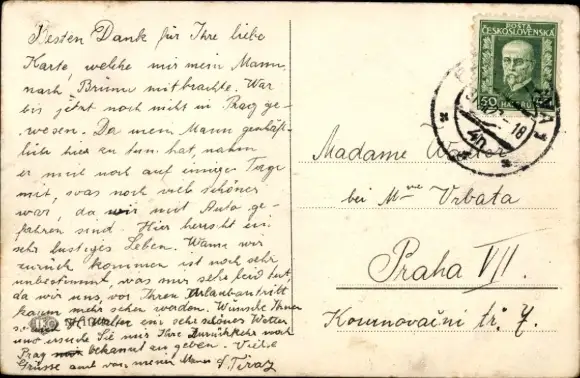 Besten Dank für Ihre liebe
Karte, welche mir mein Mann
nach Brünn mitbrachte. War
bis jetzt noch nicht in Prag ge-
wesen. Da mein Mann geschäft-
lich hier zu tun hat, nahm
er mich auf einige Tage
mit, was noch viel schöner
war, da wir mit Auto ge-
fahren sind. Hier herrscht ein
sehr lustiges Leben. Wann wir
zurück kommen ist noch sehr
unbestimmt, was mir sehr leid tut,
da wir uns vor Ihren Urlaubantritt
kaum mehr sehen werden. Wünsche Ihnen
ein sehr schönes Wetter
und Sie mir Ihre Zurückkehr nach
Prag bekannt zu geben. Viele
Grüsse auch von meinem Mann
POSTA
ČESKOSLOVENSKÁ
50 HALÉŘŮ
18
4b
Madame
bei Mme Vrbata
Praha VII.
Kournovační tř. 7.